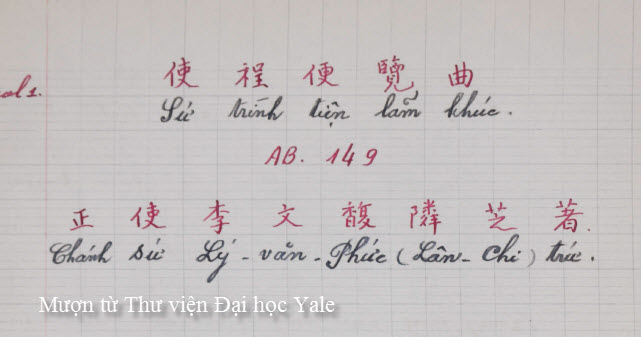 使程便覽曲
ol 1.
Sứ trình tiện lãm khúc.
AB. 149
正使李文馥隣芝著.
Chánh sứ Lý-văn-Phức (Lân-Chi) trứ.
Mượn từ Thư viện Đại học Yale